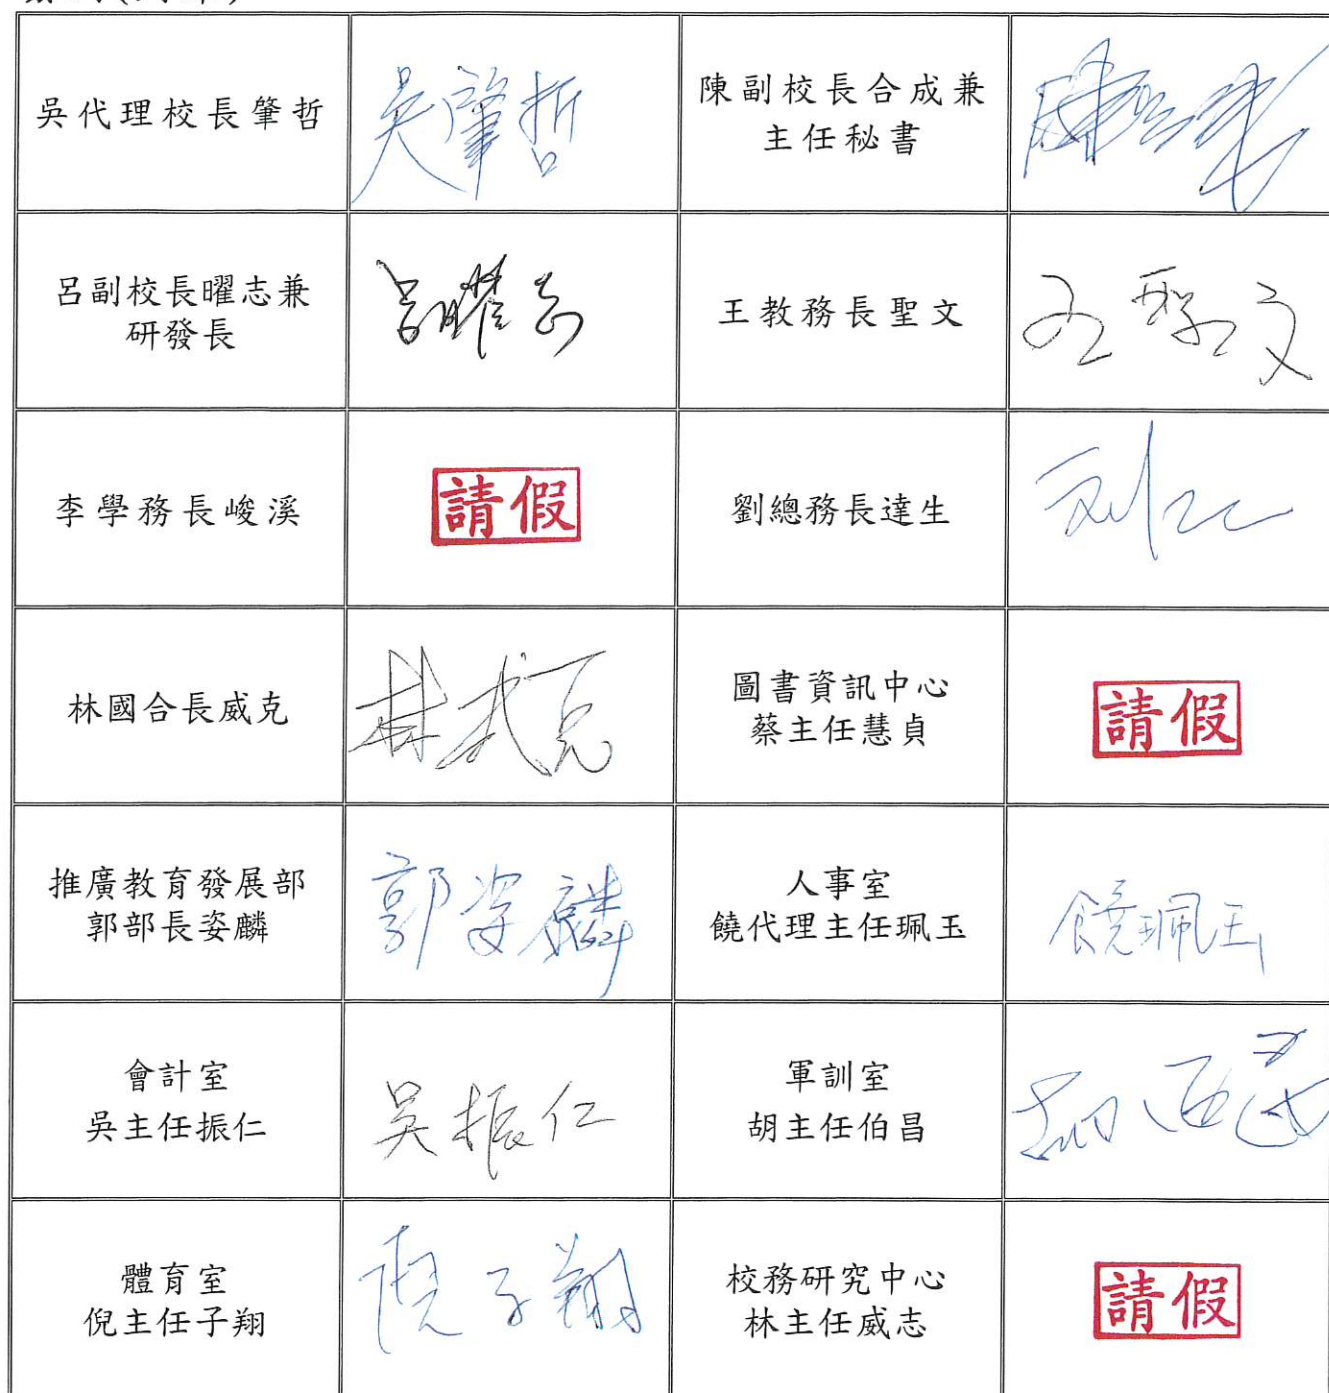 吳代理校長肇哲
吳肇哲
陳副校長合成兼
主任秘書
陳合成
呂副校長曜志兼
研發長
呂曜志
王教務長聖文
王聖文
李學務長峻溪
請假
劉總務長達生
林國合長威克
林威克
圖書資訊中心
蔡主任慧貞
請假
推廣教育發展部
郭部長姿麟
郭姿麟
人事室
饒代理主任珮玉
饒珮玉
會計室
吳主任振仁
吳振仁
軍訓室
胡主任伯昌
體育室
倪主任子翔
倪子翔
校務研究中心
林主任威志
請假